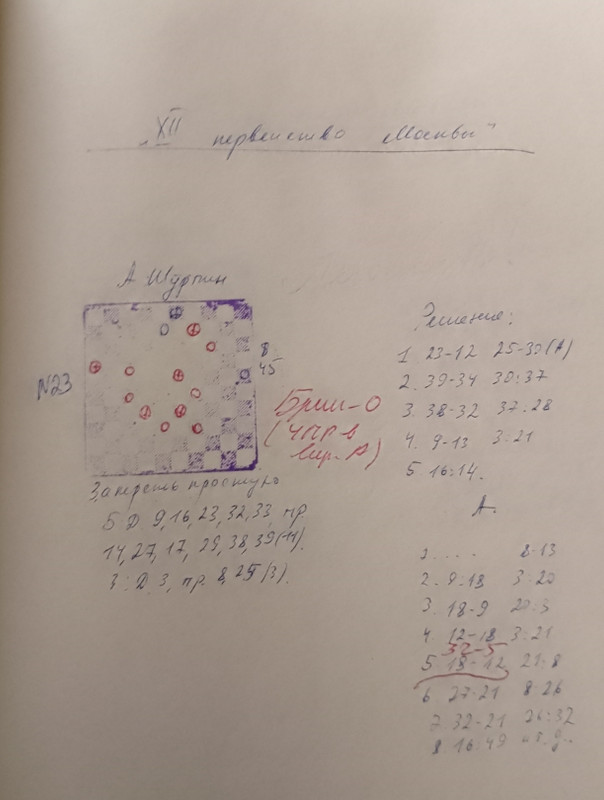 "XII первенство Москвы"
А Шурпин
№23
8
45
Запереть простую
Б Д 9,16,23,32,33, пр
14,27,17,29,38,39(11).
Ч: Д. 3, пр. 8,25(3).
Брши-О
(ЧПР в
вар. А)
Решение:
1 23-12 25-30(А)
2. 39-34 30:37
3. 38-32 37:28
4. 9-13 3:21
5 16:14.
А.
1. . . . . 8-13
2. 9:18 3:20
3. 18-9 20:3
4. 12-18 3:21
32-5
5 18-12 21:8
6 27-21 8:26
7 32-21 26:32
8 16:49